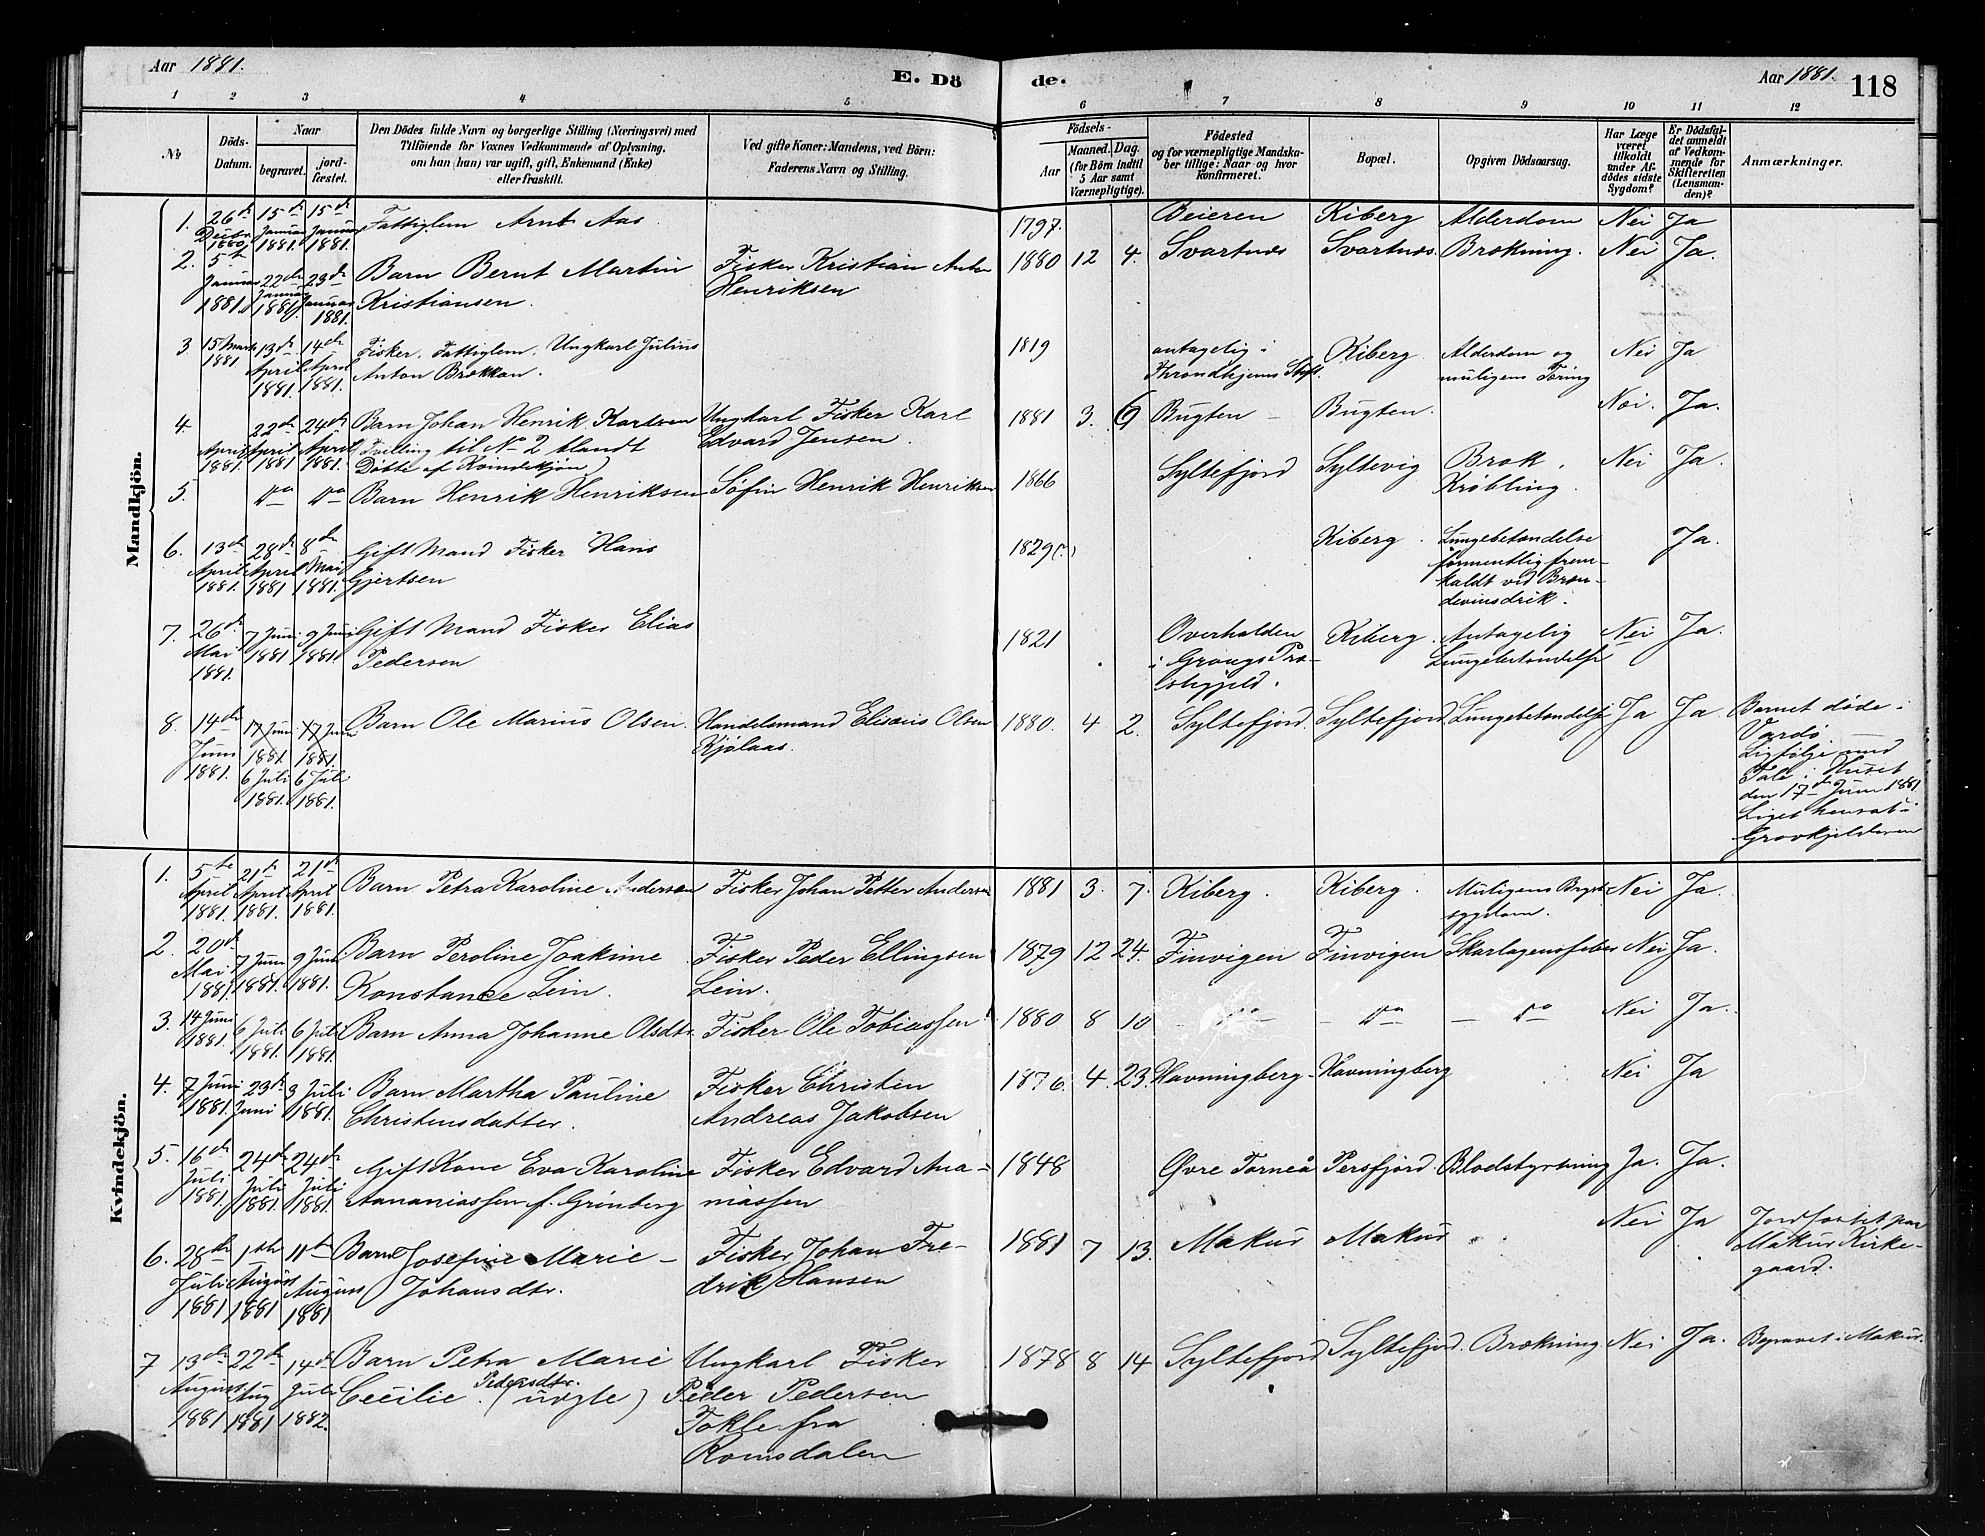 Aar 1881.
E. Dö
de.
Aar 1881.
118
1 2 3 4 5 6 7 8 9 10 11 12
No.
Döds-
Datum.
Naar
begravet.
jord-
fæstet.
Den Dödes fulde Navn og borgerlige Stilling (Næringsvei) med
Tilföiende for Voxnes Vedkommende af Oplysning,
om han (hun) var ugift, gift, Enkemand (Enke)
eller fraskilt.
Ved gifte Koner: Mandens, ved Börn:
Faderens Navn og Stilling.
Födsels-
Aar
Maaned. Dag.
(for Börn indtil
5 Aar samt
Værnepligtige).
Födested
og for værnepligtige Mandska-
ber tillige: Naar og hvor
konfirmeret.
Bopæl.
Opgiven Dödsaarsag.
Har Læge
været
tilkaldt
under Af-
dødes sidste
Sygdom?
Er Dödsfal-
det anmeldt
af Vedkom-
mende for
Skifteretten
(Lensman-
den)?
Anmærkninger.
Mandkjön.
1. 26de Decbr 1880 15de Januar 1881. 15de Januar 1881. Fattiglem Arnt Aas 1797. Beieren Kiberg Alderdom Nei Ja
2. 5te Januar 1881. 22de Januar 1881. 23de Januar 1881. Barn Bernt Martin Fisker Kristian Anton 1880 12 4. Svartnes Svartnes Brækning. Nei Ja.
Kristiansen. Henriksen
3 15 Marts 1881 13de April 1881. 14de April 1881. Fisker, Fattiglem, Ungkarl Julius 1819 antagelig i Kiberg Alderdom og Nei Ja
Anton Brækkan. Throndhjems Stift. muligens Tæring
4. April 1881. 22de April 1881 24de April 1881. Barn Johan Henrik Karlsen Ungkarl Fisker Karl 1881 3. 9 Bugten Bugten. Nei. Ja.
Tvilling til No 2 blandt Edvard Jensen.
Døbte af Kvindekjøn)
5. do do Barn Henrik Henriksen Søfin Henrik Henriksen 1866 Syltefjord Syltevig Brok, Nei Ja.
Krøbling.
6. 13de April 1881. 28de April 1881 8de Mai 1881. Gift Mand Fisker Hans 1829(?) Kiberg. Lungebetændelse Ja.
Gjertsen formentlig frem-
kaldt ved Bræn-
devinsdrik.
7. 26de Mai 1881. 7 Juni 1881 9 Juni 1881. Gift Mand Fisker Elias 1821 Overhalden Kiberg. Antagelig Nei Ja.
Pedersen i Grongs Præ- Lungebetændelse
stegjeld.
8. 14de Juni 1881. 17 Juni 1881. 6 Juli 1881. 17 Juni 1881. 6 Juli 1881. Barn Ole Marius Olsen. Handelsmand Elisæus Olsen 1880. 4 2. Syltefjord. Syltefjord. Lungebetændelse Ja Ja. Barnet døde i
Kjølaas. Vardö. —
Ligfølge med
Tale i Huset
den 17de Juni 1881.
Liget hensat i
Gravkjelderen
Kvindekjön.
1. 5te April 1881. 21de April 1881. 21de April 1881. Barn Petra Karoline Andersen Fisker Johan Petter Andersen 1881 3. 7. Kiberg. Kiberg. Muligens Bryst- Nei Ja.
sygdom.
2. 20de Mai 1881. 7 Juni 1881. 9 Juni 1881. Barn Peroline Joakime Fisker Peder Ellingsen 1879 12 24. Finvigen Finvigen Skarlagensfeber Nei Ja.
Konstance Lein. Lein.
3. 14 Juni 1881. 6 Juli 1881. 6 Juli 1881. Barn Anna Johanne Olsdtr. Fisker Ole Tobiassen 1880 8 10 — do — — do — do Nei Ja.
4. 7 Juni 1881. 23de Juni 3 Juli 1881. Barn Martha Pauline Fisker Christen 1876. 4. 23. Havningberg Havningberg Nei Ja
Christensdatter. Andreas Jakobsen
5. 16de Juli 1881. 24de Juli 1881. 24de Juli 1881. Gift Kone Eva Karoline Fisker Edvard Ana- 1848 Øvre Torneå Persfjord. Blodstyrtning Ja. Ja.
Aananiassen f. Grönberg niassen
6. 28de Juli 1881 1ste August 1881 11te August 1881 Barn Josefine Marie Fisker Johan Fre- 1881 7 13. Makur Makur Nei Ja Jordfæstet paa
Johansdtr. drik Hansen Makur Kirke-
gaard.
7 13de August 1881 22de Aug 1881 14de Juli 1882. Barn Petra Marie Ungkarl Fisker 1878 8 14 Syltefjord Syltefjord. Brækning Nei Ja. Begravet i Makur.
Cecilie Pedersdtr. (uægte) Peder Pedersen
Tokle fra
Romsdalen